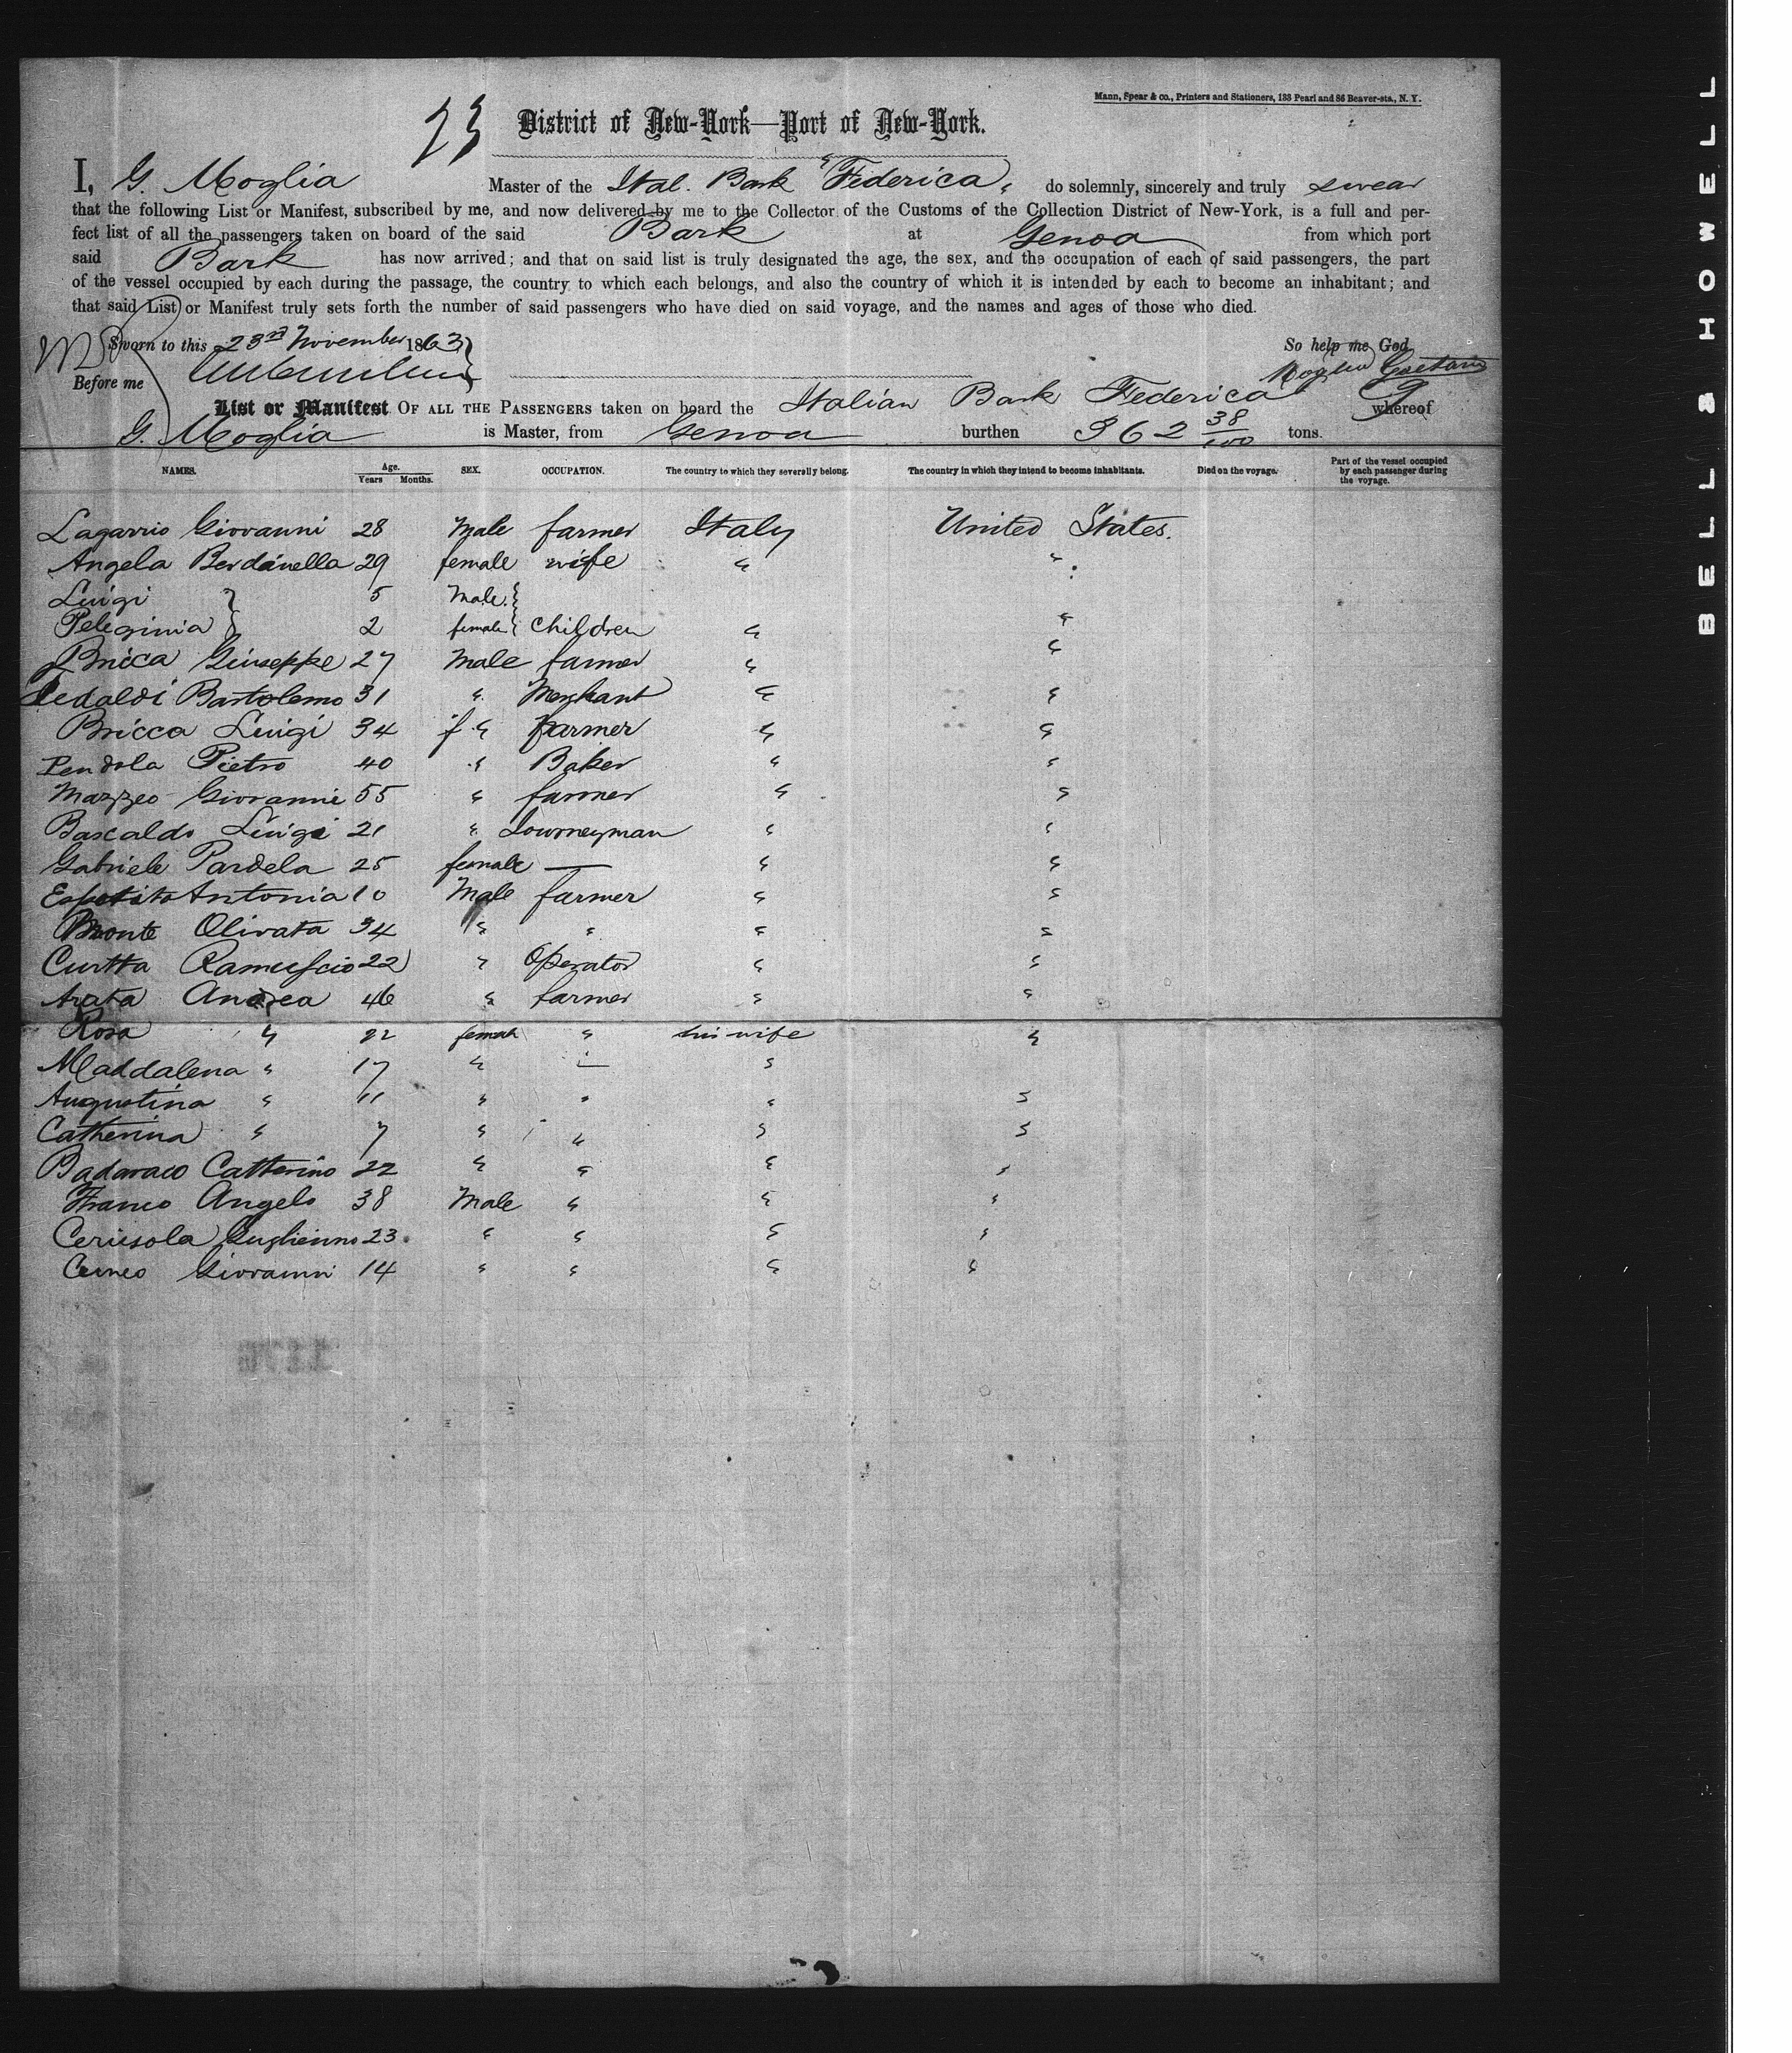 Mann, Spear & Co., Printers and Stationers, 133 Pearl and 86 Beaver-sts., N. Y.
23 District of New-York—Port of New-York.
I, G. Moglia Master of the Ital. Bark "Federica" do solemnly, sincerely and truly swear
that the following List or Manifest, subscribed by me, and now delivered by me to the Collector of the Customs of the Collection District of New-York, is a full and per-
fect list of all the passengers taken on board of the said Bark at Genoa from which port
said Bark has now arrived; and that on said list is truly designated the age, the sex, and the occupation of each of said passengers, the part
of the vessel occupied by each during the passage, the country to which each belongs, and also the country of which it is intended by each to become an inhabitant; and
that said List or Manifest truly sets forth the number of said passengers who have died on said voyage, and the names and ages of those who died.
Sworn to this 23rd November 1863 So help me God
Before me Moglia Gaetano
List or Manifest OF ALL THE PASSENGERS taken on board the Italian Bark Federica whereof
G. Moglia is Master, from Genoa burthen 362 38/100 tons.
NAMES. Age. Years Months. SEX. OCCUPATION. The country to which they severally belong. The country in which they intend to become inhabitants. Died on the voyage. Part of the vessel occupied by each passenger during the voyage.
Lagarrio Giovanni 28 Male farmer Italy United States.
Angela Berdanella 29 female wife " "
Luigi 5 Male
Peleginia 2 female Children " "
Bricca Giuseppe 27 Male farmer " "
Dedaldi Bartolomo 31 " Merchant " "
Bricca Luigi 34 " farmer " "
Pendola Pietro 40 " Baker " "
Mazzeo Giovanni 55 " farmer " "
Bascaldo Luigi 21 " Journeyman " "
Gabriele Pardela 25 female — " "
Esposito Antonia 10 Male farmer " "
Monte Olivata 34 " " " "
Curtta Ramuscio 22 " Operator " "
Arata Andrea 46 " farmer " "
Rosa " 22 female " his wife "
Maddalena " 17 " — "
Augustina " 11 " " " "
Catherina " 7 " " " "
Badaraco Catterino 22 " " " "
Franco Angelo 38 Male " " "
Cerisola Guglienno 23 " " " "
Cuneo Giovanni 14 " " " "
BELL & HOWELL